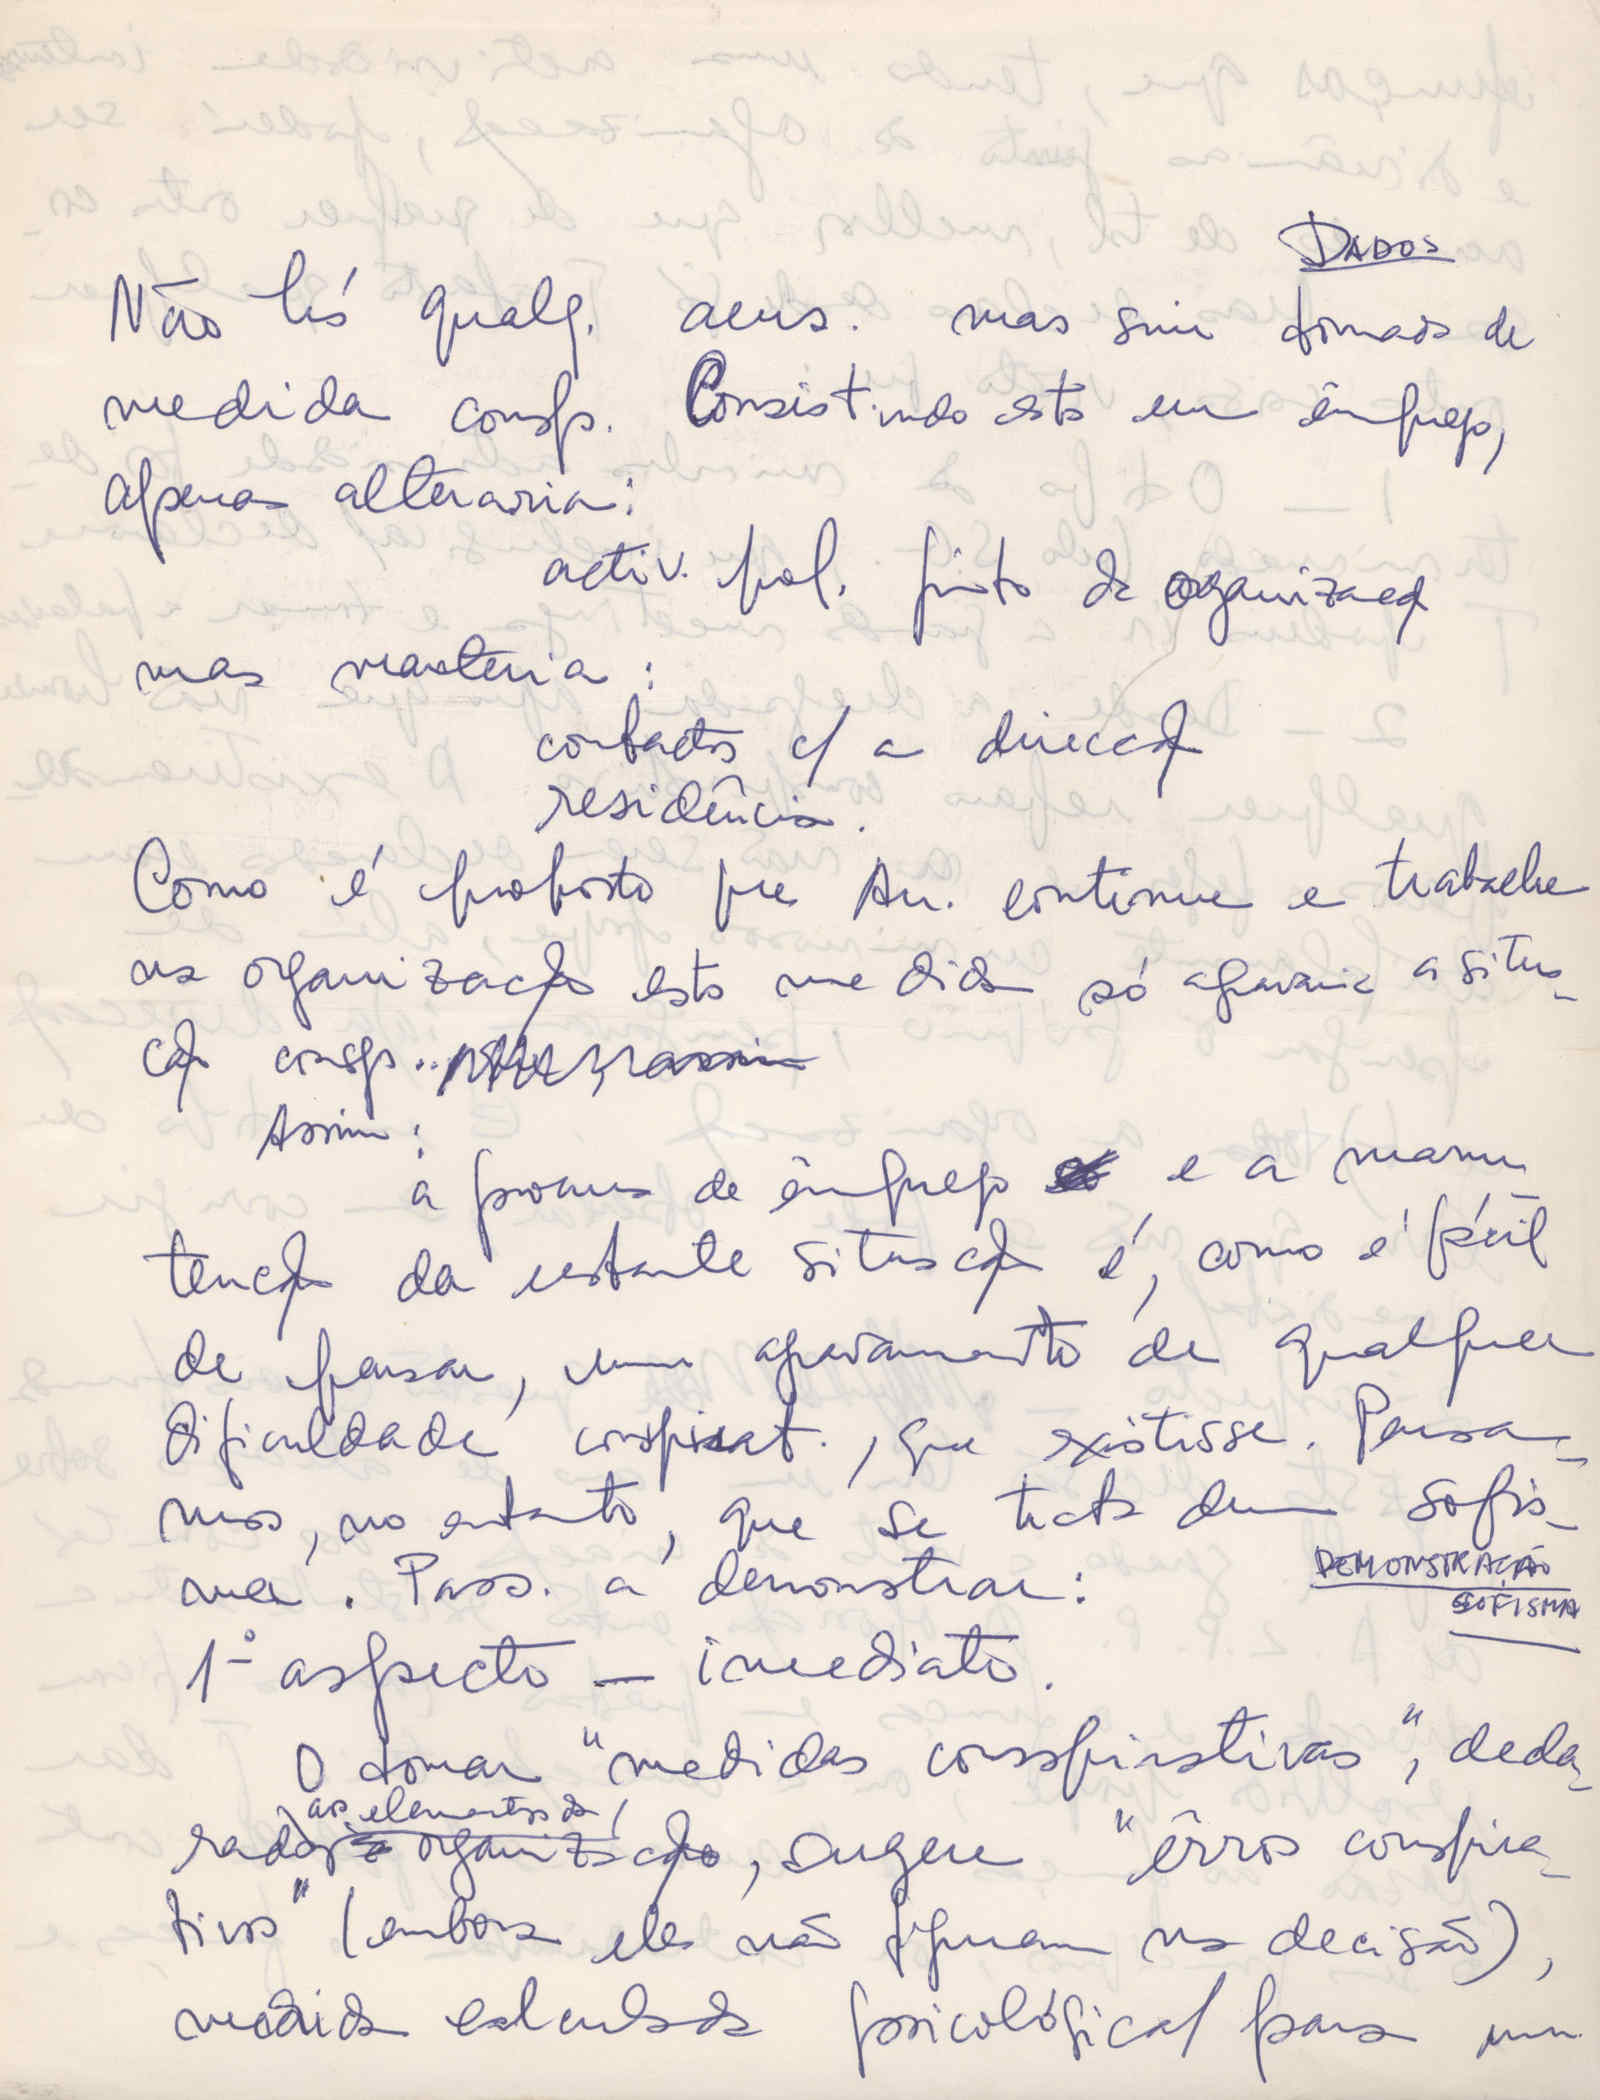 DADOS
Não há qualq. acus. mas sim tomada de
medida consp. Consistindo esta em êmprego,
apenas alteraria:
activ. pol. junto da organização
mas manteria:
contactos c/ a direcção
residência.
Como é proposto que An. continue e trabalhe
na organização esta medida só agravaria a situa-
ção consp..
Assim:
a procura de êmprego e a manu
tenção da restante situação é, como é fácil
de pensar, um agravamento de qualquer
dificuldade conspirat., que existisse. Pensa-
mos, no entanto, que se trata dum sofis-
ma. Pass. a demonstrar:
DEMONSTRAÇÃO
SOFISMA
1º aspecto — imediato.
O tomar "medidas conspirativas", decla-
radas aos elementos da
organização, sugere "êrros conspira-
tivos" (embora eles não figuram na decisão),
medida calculada psicològica/ para um